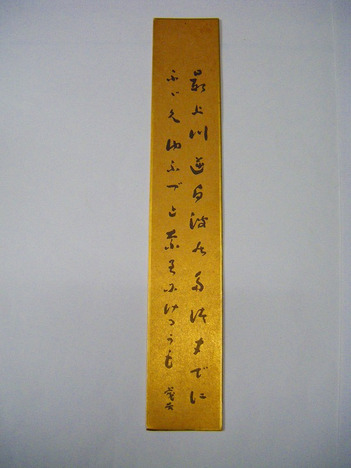 最上川逆白波のたつまでに
ふゞくゆふべとなりにけるかも 茂吉